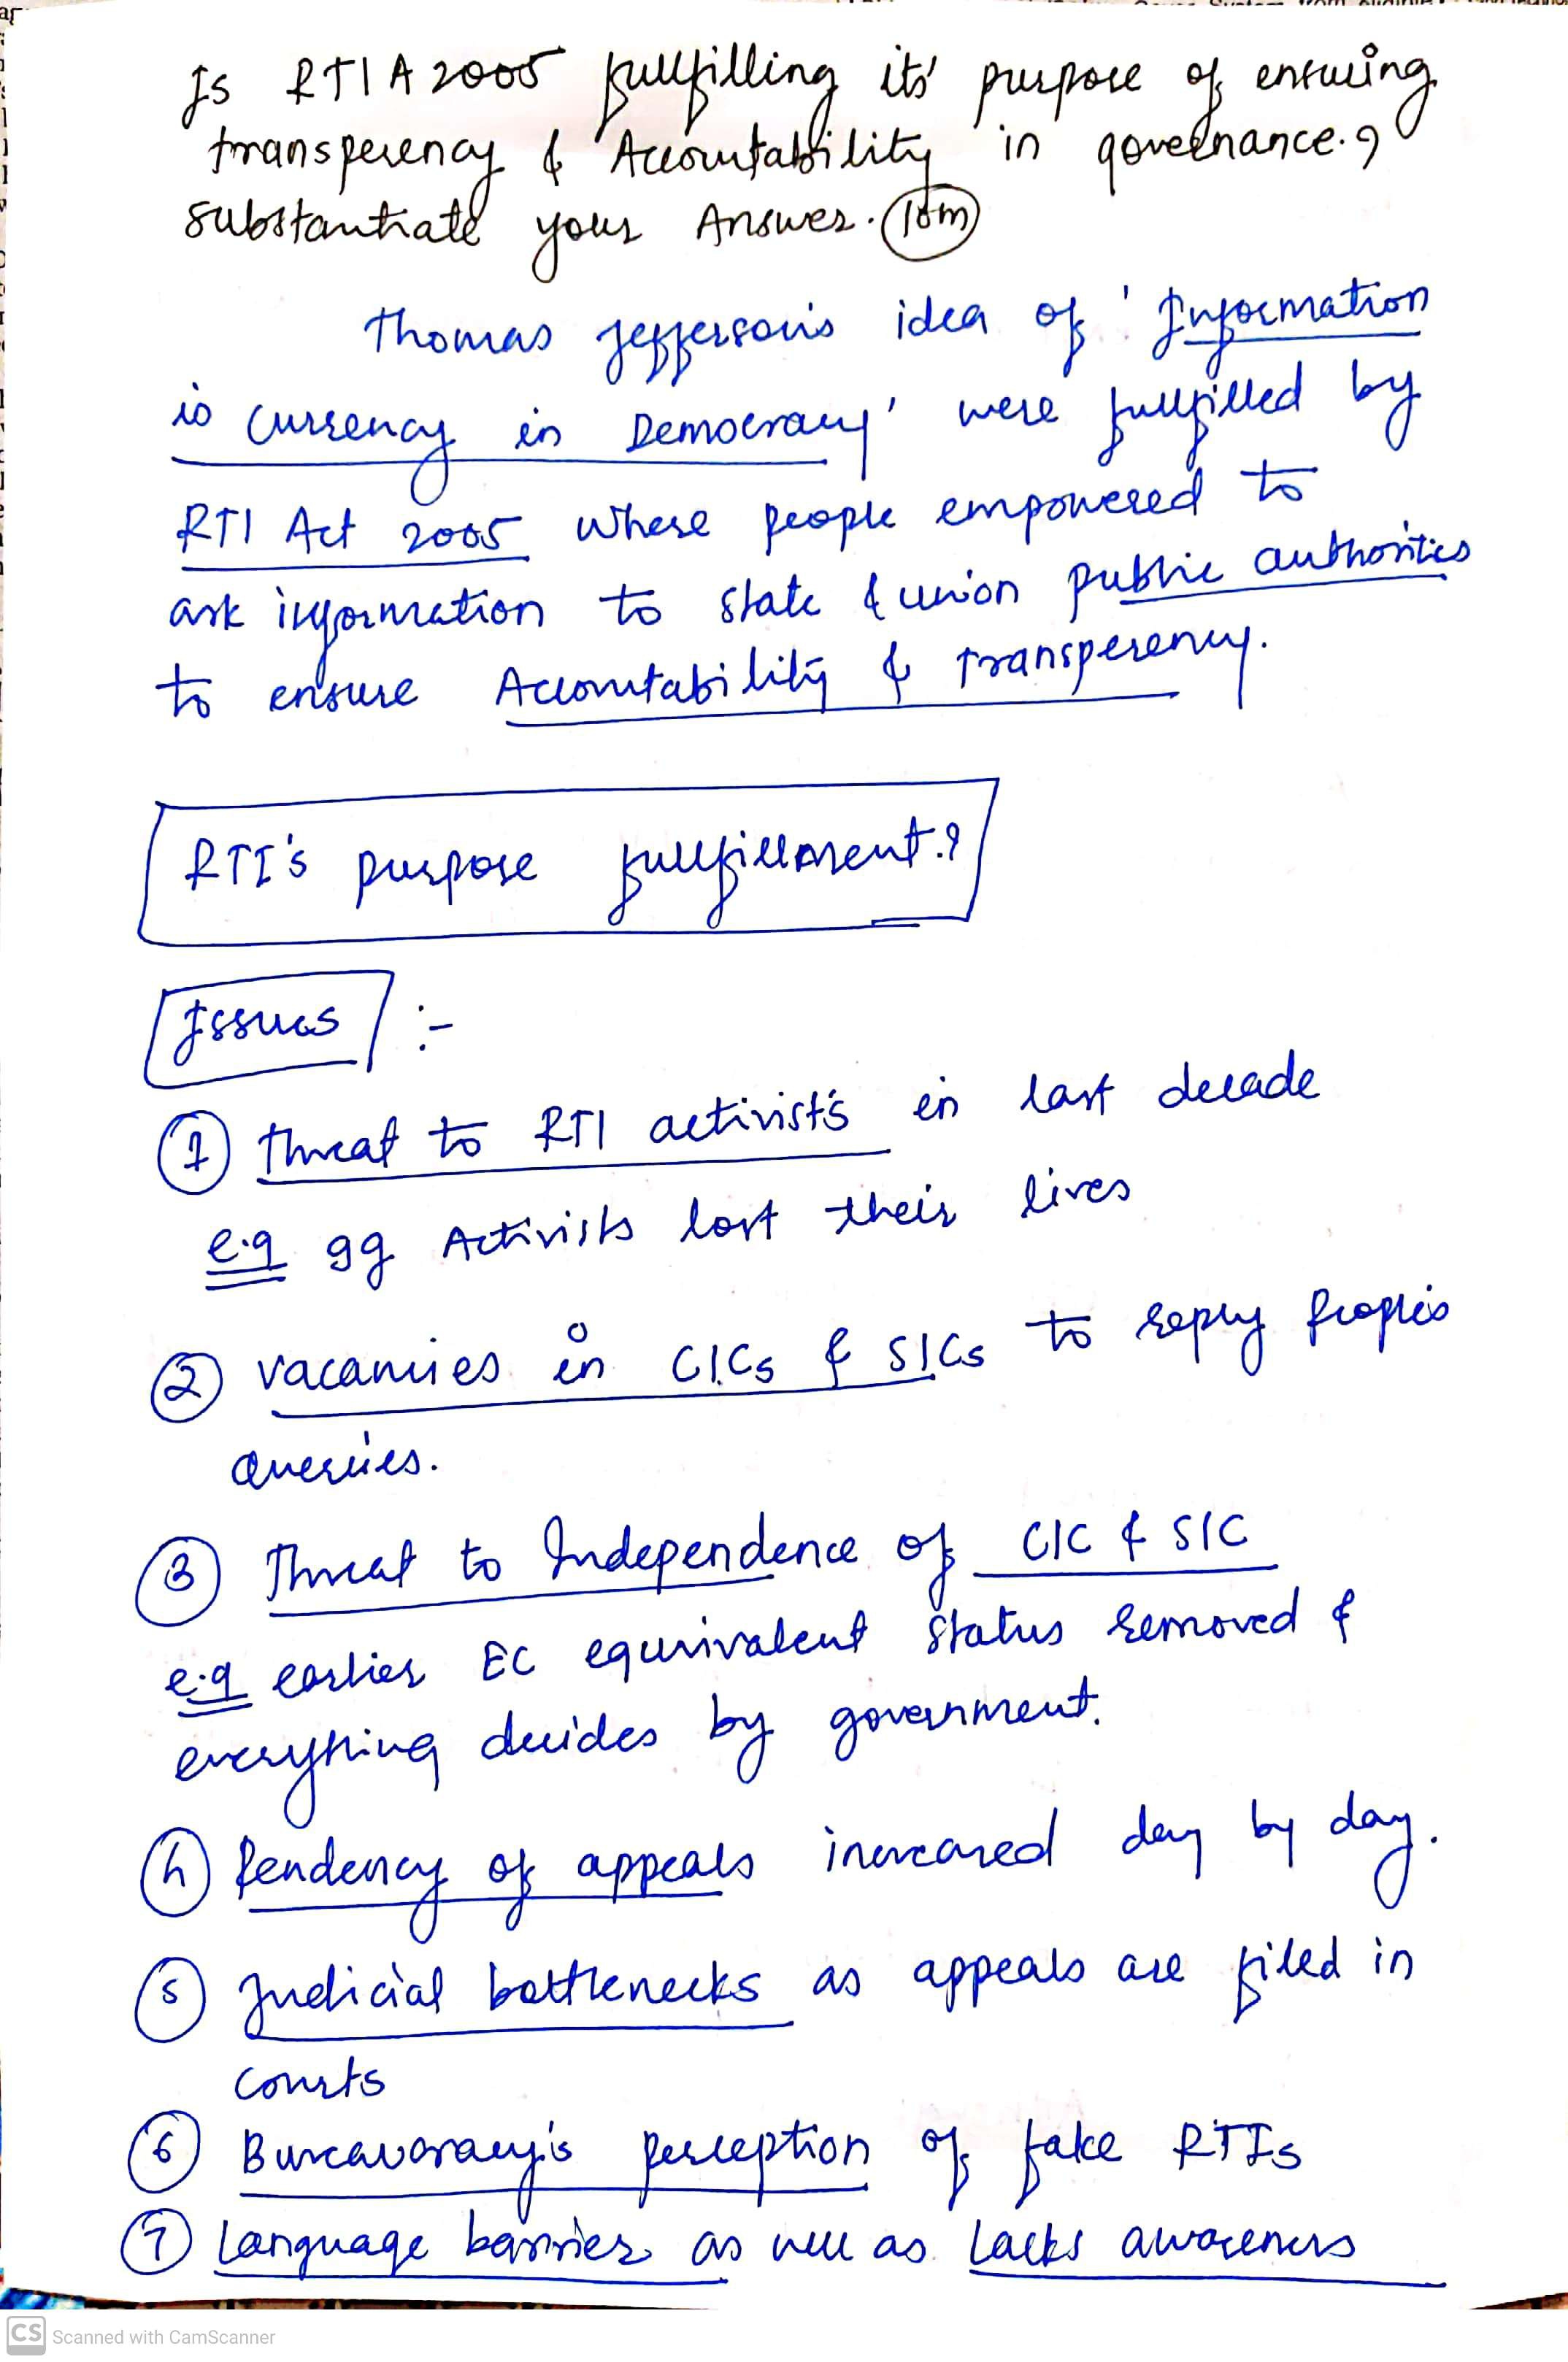 Is RTI A 2005 fullfilling its' purpose of ensuring
transperency & Accountability in governance.?
substantiate your Answer. 10m
Thomas Jefferson's idea of 'Information
is currency in Democracy' were fullfilled by
RTI Act 2005 where people empowered to
ask information to state & union public authorities
to ensure Accountability & transperency.
RTI's purpose fullfillment.?
Issues :-
1 Threat to RTI activists in last decade
e.g 99 Activists lost their lives
2 vacancies in CICs & SICs to reply people's
queries.
3 Threat to Independence of CIC & SIC
e.g earlier EC equivalent status removed &
everything decides by government.
4 Pendency of appeals increased day by day.
5 Judicial bottlenecks as appeals are filed in
courts
6 Bureaucracy's perception of fake RTIs
7 Language barrier as well as lacks awareness
CS Scanned with CamScanner